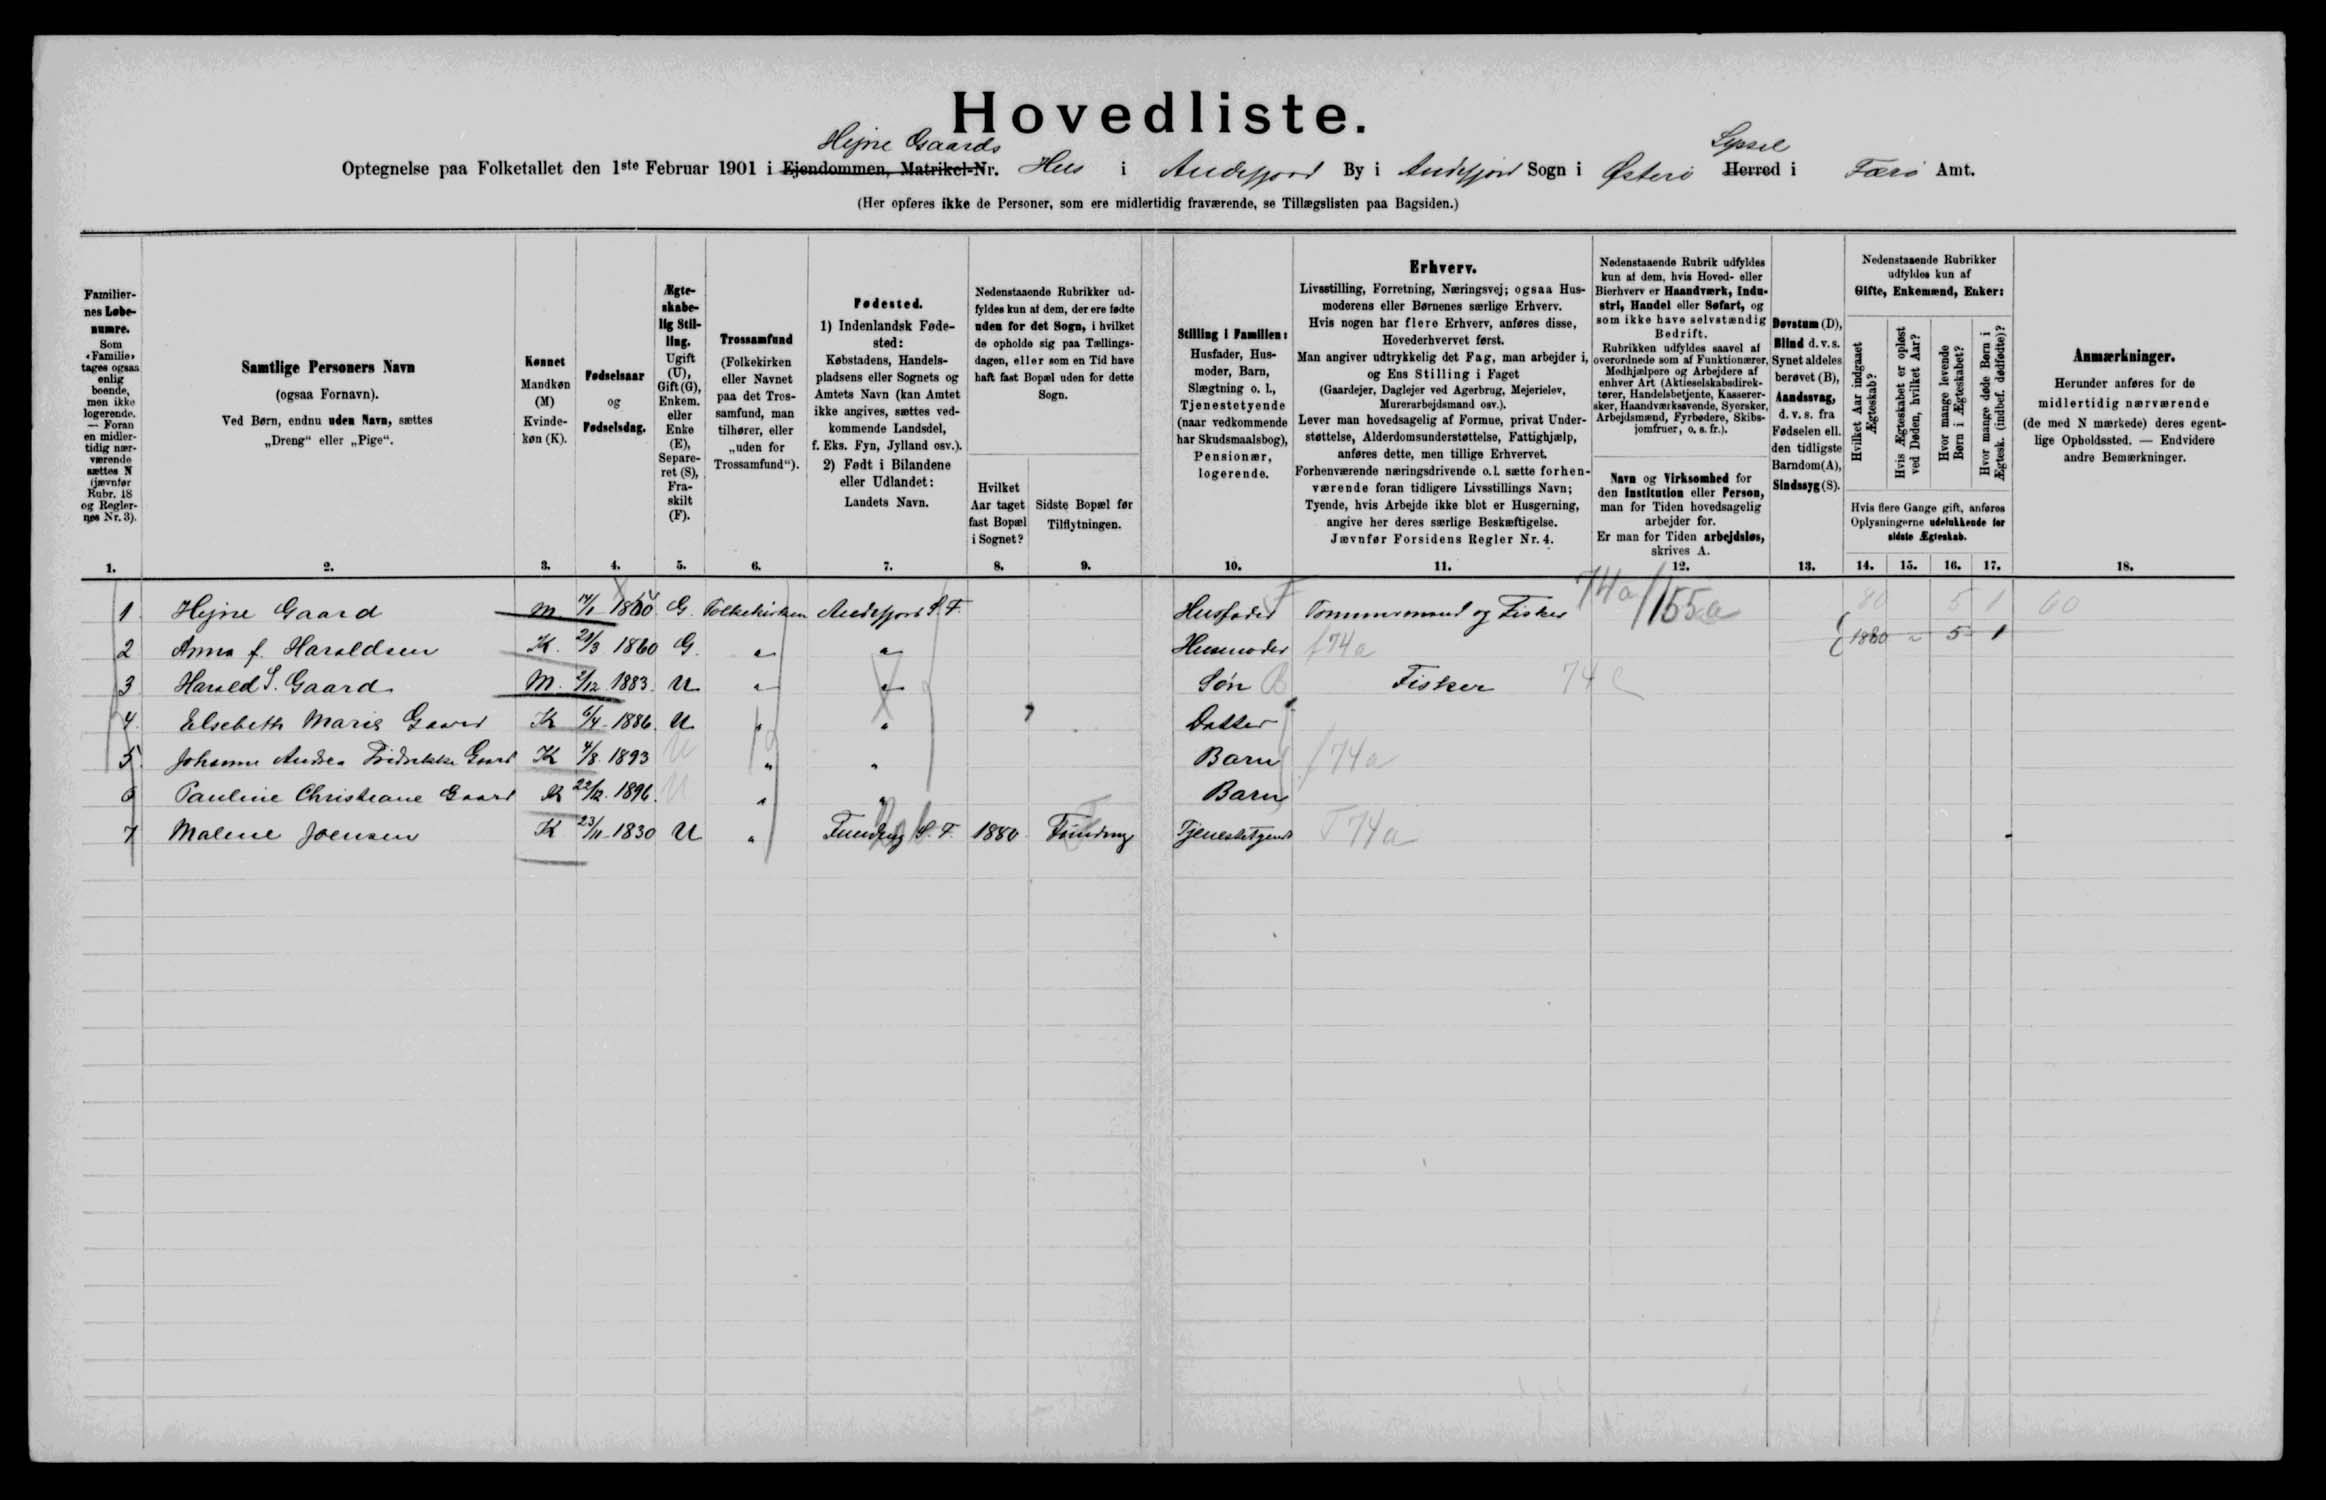 Hovedliste.
Hejne Gaards Syssel
Optegnelse paa Folketallet den 1ste Februar 1901 i Ejendommen, Matrikel-Nr. Hus i Andefjord By i Andefjord Sogn i Østerø Herred i Færø Amt.
(Her opføres ikke de Personer, som ere midlertidig fraværende, se Tillægslisten paa Bagsiden.)
Familiernes Løbenumre. Som «Familie» tages ogsaa enlig boende, men ikke logerende. — Foran en midlertidig nærværende sættes N (jævnfør Rubr. 18 og Reglernes Nr. 3). 1.
Samtlige Personers Navn (ogsaa Fornavn). Ved Børn, endnu uden Navn, sættes „Dreng“ eller „Pige“. 2.
Kønnet Mandkøn (M) Kvindekøn (K). 3.
Fødselsaar og Fødselsdag. 4.
Ægteskabelig Stilling. Ugift (U), Gift (G), Enkem. eller Enke (E), Separeret (S), Fraskilt (F). 5.
Trossamfund (Folkekirken eller Navnet paa det Trossamfund, man tilhører, eller „uden for Trossamfund“). 6.
Fødested. 1) Indenlandsk Fødested: Købstadens, Handelspladsens eller Sognets og Amtets Navn (kan Amtet ikke angives, sættes vedkommende Landsdel, f. Eks. Fyn, Jylland osv.). 2) Født i Bilandene eller Udlandet: Landets Navn. 7.
Nedenstaaende Rubrikker udfyldes kun af dem, der ere fødte uden for det Sogn, i hvilket de opholde sig paa Tællingsdagen, eller som en Tid have haft fast Bopæl uden for dette Sogn.
Hvilket Aar taget fast Bopæl i Sognet? 8.
Sidste Bopæl før Tilflytningen. 9.
Stilling i Familien: Husfader, Husmoder, Barn, Slægtning o. l., Tjenestetyende (naar vedkommende har Skudsmaalsbog), Pensionær, logerende. 10.
Erhverv. Livsstilling, Forretning, Næringsvej; ogsaa Husmoderens eller Børnenes særlige Erhverv. Hvis nogen har flere Erhverv, anføres disse, Hovederhvervet først. Man angiver udtrykkelig det Fag, man arbejder i, og Ens Stilling i Faget (Gaardejer, Daglejer ved Agerbrug, Mejerielev, Murerarbejdsmand osv.). Lever man hovedsagelig af Formue, privat Understøttelse, Alderdomsunderstøttelse, Fattighjælp, anføres dette, men tillige Erhvervet. Forhenværende næringsdrivende o. l. sætte forhenværende foran tidligere Livsstillings Navn; Tyende, hvis Arbejde ikke blot er Husgerning, angive her deres særlige Beskæftigelse. Jævnfør Forsidens Regler Nr. 4. 11.
Nedenstaaende Rubrik udfyldes kun af dem, hvis Hoved- eller Bierhverv er Haandværk, Industri, Handel eller Søfart, og som ikke have selvstændig Bedrift. Rubrikken udfyldes saavel af overordnede som af Funktionærer, Medhjælpere og Arbejdere af enhver Art (Aktieselskabsdirektører, Handelsbetjente, Kasserersker, Haandværkssvende, Syersker, Arbejdsmænd, Fyrbødere, Skibsjomfruer, o. s. fr.).
Navn og Virksomhed for den Institution eller Person, man for Tiden hovedsagelig arbejder for. Er man for Tiden arbejdsløs, skrives A. 12.
Døvstum (D), Blind d. v. s. Synet aldeles berøvet (B), Aandssvag, d. v. s. fra Fødselen ell. den tidligste Barndom (A), Sindssyg (S). 13.
Nedenstaaende Rubrikker udfyldes kun af Gifte, Enkemænd, Enker:
Hvilket Aar indgaaet Ægteskab? 14.
Hvis Ægteskabet er opløst ved Døden, hvilket Aar? 15.
Hvor mange levende Børn i Ægteskabet? 16.
Hvor mange døde Børn i Ægtesk. (indbef. dødfødte)? 17.
Hvis flere Gange gift, anføres Oplysningerne udelukkende for sidste Ægteskab.
Anmærkninger. Herunder anføres for de midlertidig nærværende (de med N mærkede) deres egentlige Opholdssted. — Endvidere andre Bemærkninger. 18.
1 Hejne Gaard M G. Folkekirken Andefjord S. F. Husfader F Tømmermand og Fisker 74a/155a 80 5 1 60
2 Anna f. Haraldsen K. 21/3 1860 G. " " Husmoder f 74a 1880 " 5 1
3 Harald S. Gaard M. 2/12 1883. U " " Søn B Fisker 74
4. Elsebeth Marie Gaard K 6/4 1886. U " " Datter
5. Johanne Andrea Fridrikke Gaard K 4/8 1893 U " " Barn f 74a
6 Pauline Christiane Gaard K 22/12. 1896. U " " Barn
7 Malene Joensen K 23/11 1830 U " Funding S. F. 1880 Funding Tjenestetyende T 74a